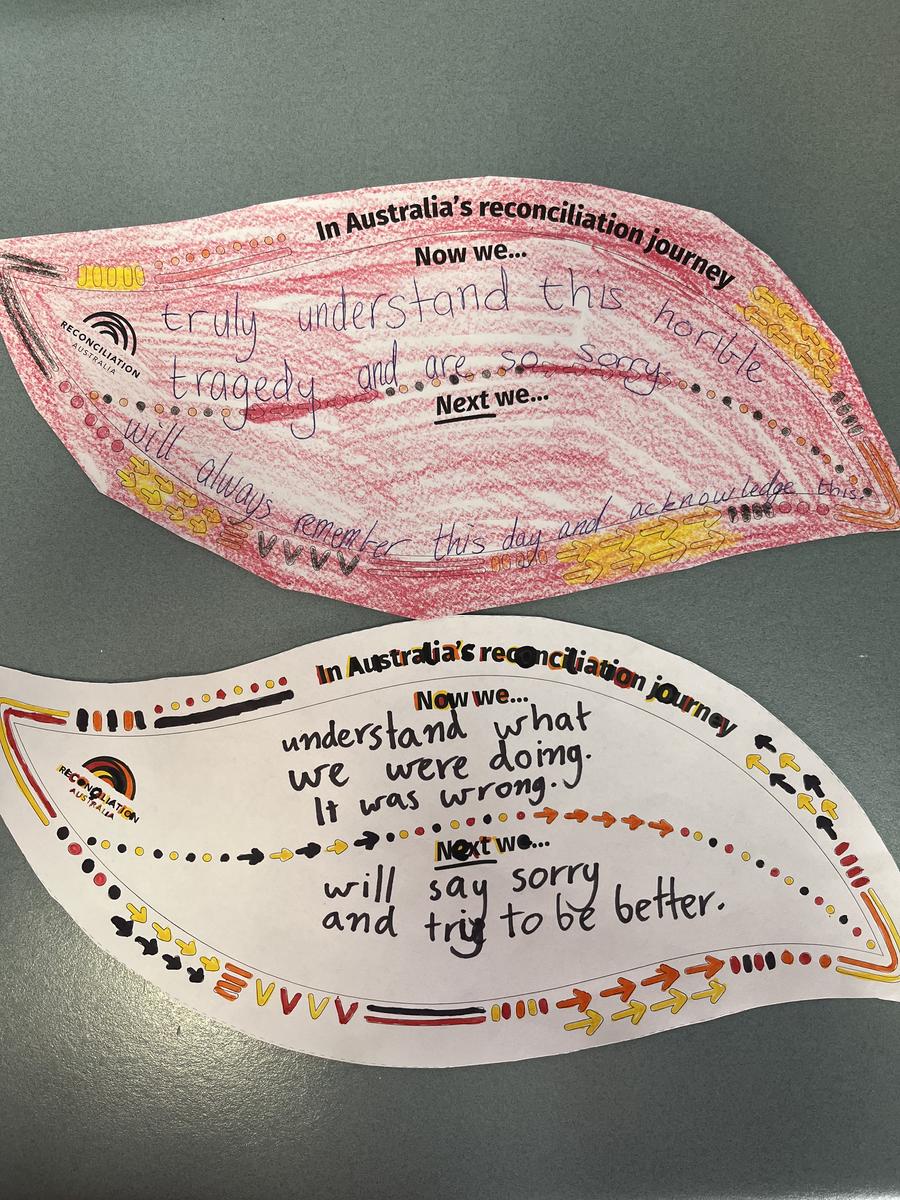 In Australia's reconciliation journey
Now we...
truly understand this horible
RECONCILIATION
AUSTRALIA
tragedy and are so sorry
Next we...
will always remember this day and acknowledge this.
In Australia's reconciliation journey
Now we...
understand what
we were doing.
It was wrong.
RECONCILIATION
AUSTRALIA
Next we...
will say sorry
and try to be better.